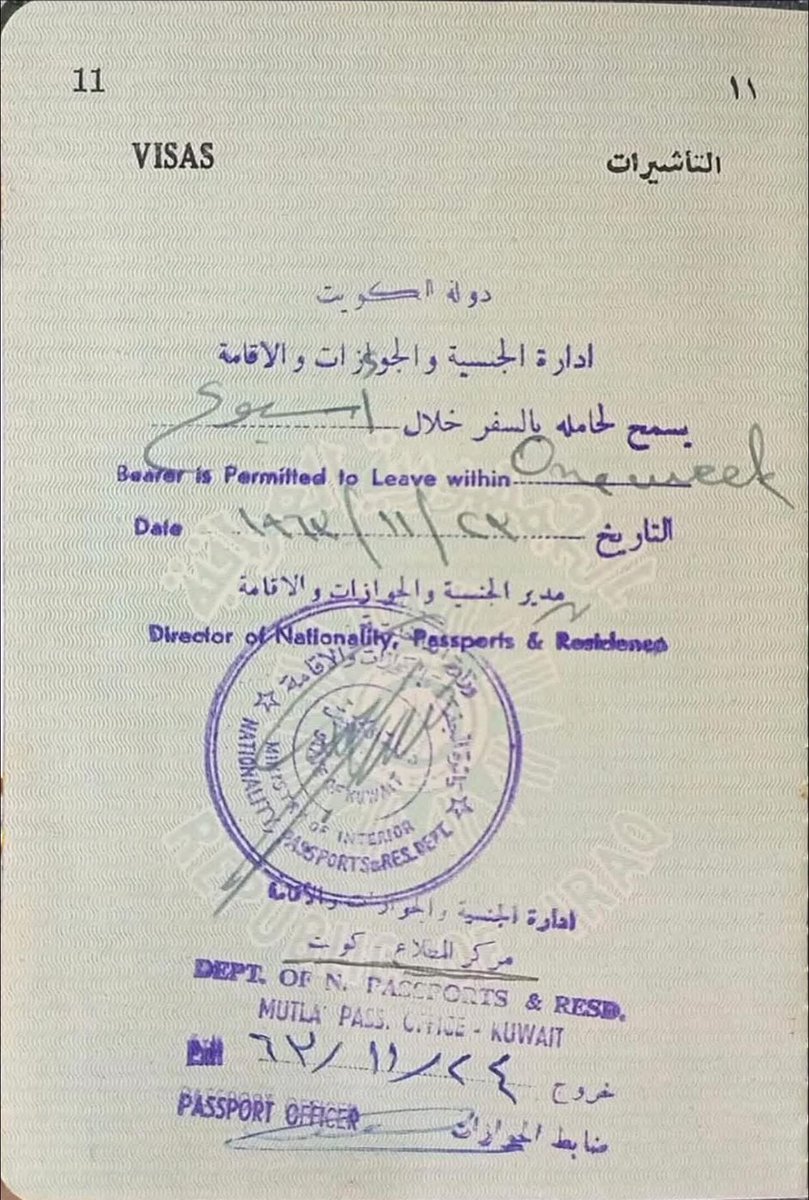 11 ١١
VISAS التأشيرات
دولة الكويت
ادارة الجنسية والجوازات والاقامة
يسمح لحامله بالسفر خلال اسبوع
Bearer is Permitted to Leave within One week
Date ١٩٦٣/١١/٢٣ التاريخ
مدير الجنسية والجوازات والاقامة
Director of Nationality, Passports & Residence
وزارة الداخلية
والجوازات والاقامة
STATE OF KUWAIT
MINISTRY OF INTERIOR
NATIONALITY, PASSPORTS & RES. DEPT.
REPUBLIC OF IRAQ
ادارة الجنسية والجوازات والاقامة
مركز المطلاع كويت
DEPT. OF N. PASSPORTS & RESD.
MUTLA' PASS. OFFICE - KUWAIT
٦٣/١١/٢٤ خروج
PASSPORT OFFICER ضابط الجوازات